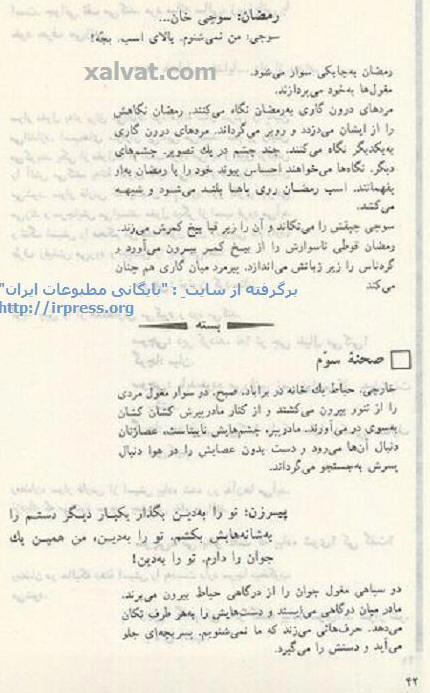 رمضان: سوچی خان...
سوچی: من نمی‌شنوم. پالای اسب. بچّه!
xalvat.com
رمضان به‌چابکی سوار می‌شود.
مغول‌ها به‌خود می‌پردازند.
مردهای درون گاری به‌رمضان نگاه می‌کنند. رمضان نگاهش
را از ایشان می‌دزدد و روبر می‌گرداند. مردهای درون گاری
به‌یکدیگر نگاه می‌کنند. چند چشم در یك تصویر. چشم‌های
دیگر. نگاه‌ها می‌خواهند احساس پیوند خود را با رمضان به‌او
بفهمانند. اسب رمضان روی پاها بلند می‌شود و شیهه
می‌کشد.
سوچی چپقش را می‌تکاند و آن را زیر قبا بیخ کمرش می‌زند.
رمضان قوطی ناسوارش را از بیخ کمر بیرون می‌آورد و
گردناس را زیر زبانش می‌اندازد. پیرمرد میان گاری هم چنان
می‌کند
برگرفته از سایت : "بایگانی مطبوعات ایران"
http://irpress.org
بسته
صحنهٔ سوّم
خارجی. حیاط یك خانه در براباد. صبح. دو سوار مغول مردی
را از تنور بیرون می‌کشند و از کنار مادرپیرش کشان کشان
به‌سوی در می‌آورند. مادرپیر، چشم‌هایش نابیناست. عصازنان
دنبال آن‌ها می‌رود و دست بدون عصایش را در هوا دنبال
پسرش به‌جستجو می‌گرداند.
پیرزن: تو را به‌دین بگذار یکبار دیگر دستم را
به‌شانه‌هایش بکشم. تو را به‌دین، من همین یك
جوان را دارم. تو را به‌دین!
دو سپاهی مغول جوان را از درگاهی حیاط بیرون می‌برند.
مادر میان درگاهی می‌ایستد و دست‌هایش را به‌هر طرف تکان
می‌دهد. حرف‌هائی می‌زند که ما نمی‌شنویم. پسربچه‌ای جلو
می‌آید و دستش را می‌گیرد.
۴۲